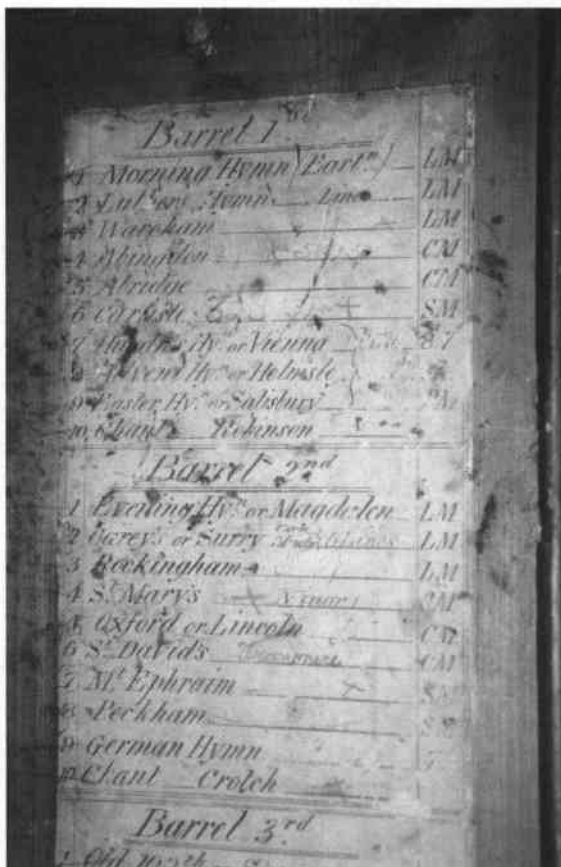 Barrel 1st
1 Morning Hymn (Barth.n) LM
2 Luthers Hymn LM
3 Wareham LM
4 Abingdon CM
5 Abridge CM
6 Carlisle SM
7 Haydns Hy. or Vienna 87
8 Advent Hy. or Helmsle
9 Easter Hy. or Salisbury
10 Chant Robinson
Barrel 2nd
1 Evening Hy.n or Magdelen LM
2 Carey's or Surry LM
3 Rockingham LM
4 St Mary's Minor CM
5 Oxford or Lincoln CM
6 St David's CM
7 Mt Ephraim SM
8 Peckham SM
9 German Hymn 7
10 Chant Crotch
Barrel 3rd
1 Old